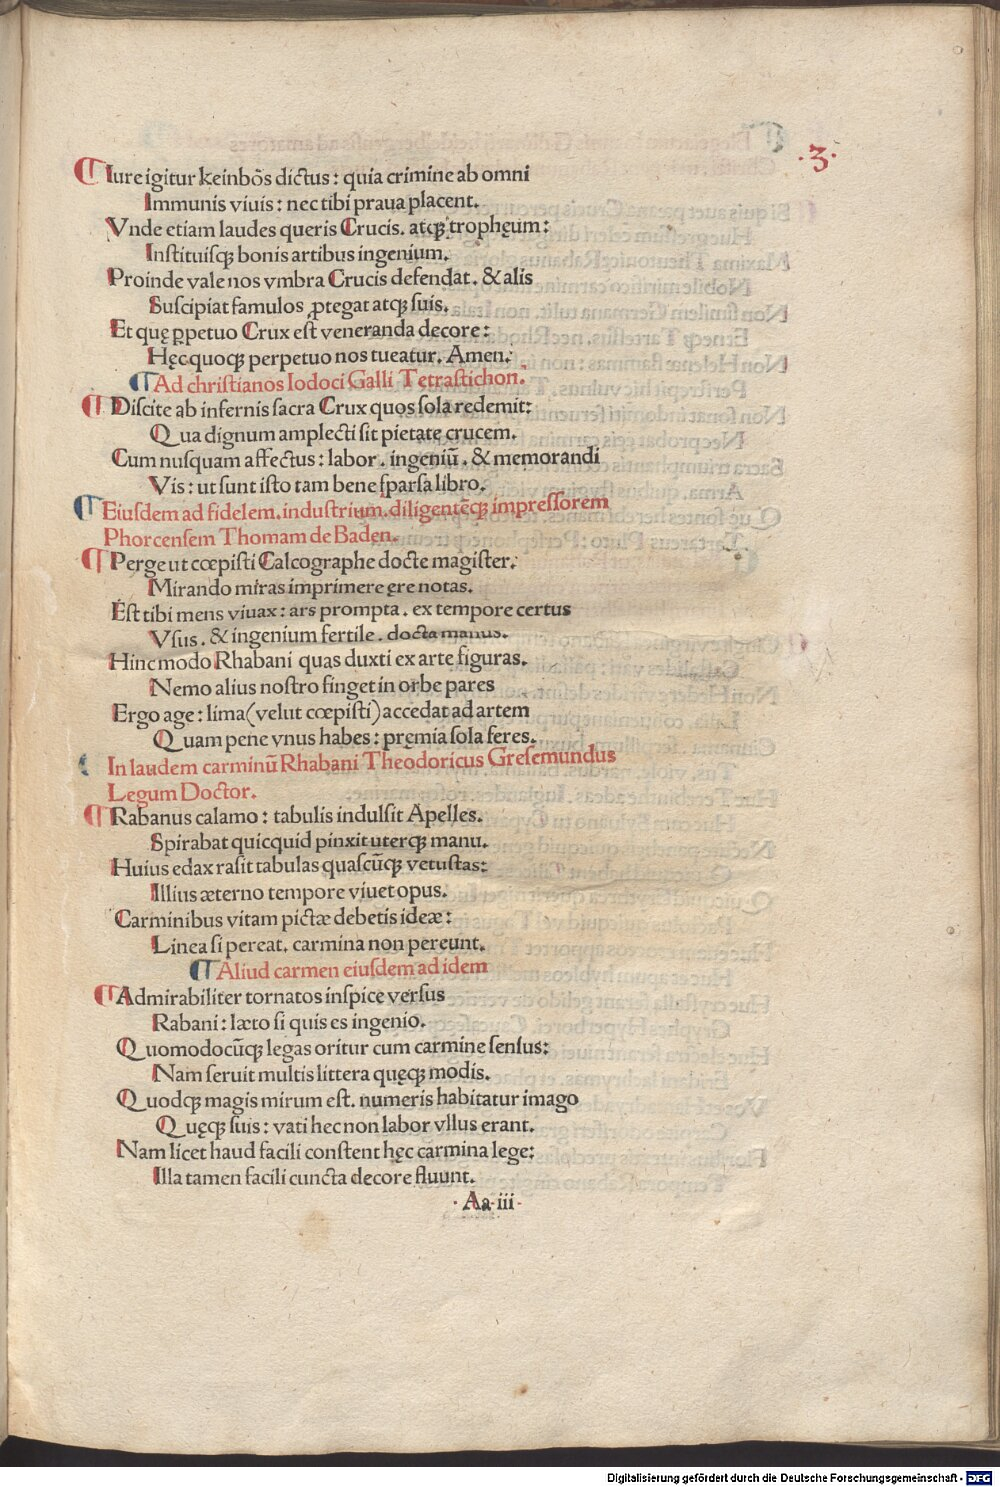 ·3·
¶ Iure igitur keinbōs dictus: quia crimine ab omni
Immunis viuis: nec tibi praua placent.
Vnde etiam laudes queris Crucis. atqꝫ trophęum:
Instituisqꝫ bonis artibus ingenium.
Proinde vale nos vmbra Crucis defendat. & alis
Suscipiat famulos ꝓtegat atqꝫ suis.
Et quę ꝑpetuo Crux est veneranda decore:
Hęc quoqꝫ perpetuo nos tueatur. Amen.
¶ Ad christianos Iodoci Galli Tetrastichon.
¶ Discite ab infernis sacra Crux quos sola redemit:
Qua dignum amplecti sit pietate crucem.
Cum nusquam affectus: labor. ingeniū. & memorandi
Vis: ut sunt isto tam bene sparsa libro.
¶ Eiusdem ad fidelem. industrium. diligentēqꝫ impressorem
Phorcensem Thomam de Baden.
¶ Perge ut cœpisti Calcographe docte magister.
Mirando miras imprimere ęre notas.
Est tibi mens viuax: ars prompta. ex tempore certus
Vsus. & ingenium fertile. docta manus.
Hinc modo Rhabani quas duxti ex arte figuras.
Nemo alius nostro finget in orbe pares
Ergo age: lima (velut cœpisti) accedat ad artem
Quam pene vnus habes: pręmia sola feres.
¶ In laudem carminū Rhabani Theodoricus Gresemundus
Legum Doctor.
¶ Rabanus calamo: tabulis indulsit Apelles.
Spirabat quicquid pinxit uterqꝫ manu.
Huius edax rasit tabulas quascūqꝫ vetustas:
Illius æterno tempore viuet opus.
Carminibus vitam pictæ debetis ideæ:
Linea si pereat. carmina non pereunt.
¶ Aliud carmen eiusdem ad idem
¶ Admirabiliter tornatos inspice versus
Rabani: læto si quis es ingenio.
Quomodocūqꝫ legas oritur cum carmine sensus:
Nam seruit multis littera quęqꝫ modis.
Quodqꝫ magis mirum est. numeris habitatur imago
Quęqꝫ suis: vati hec non labor vllus erant.
Nam licet haud facili constent hęc carmina lege:
Illa tamen facili cuncta decore fluunt.
·Aa·iii·
Digitalisierung gefördert durch die Deutsche Forschungsgemeinschaft - DFG